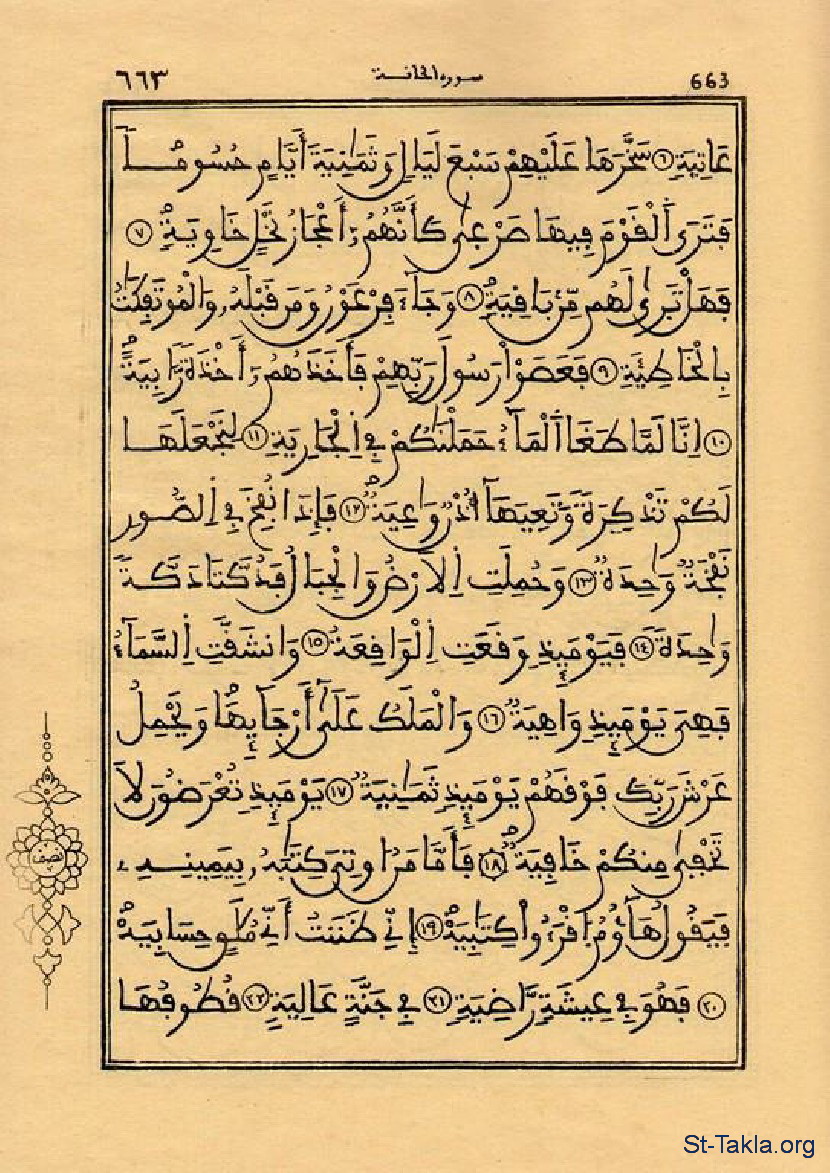 ٦٦٣ سورة الحاقة 663
عَاتِيَةٍ ٦ سَخَّرَهَا عَلَيْهِمْ سَبْعَ لَيَالٍ وَثَمَٰنِيَةَ أَيَّامٍ حُسُوماً
فَتَرَى اَلْقَوْمَ فِيهَا صَرْعىٰ كَأَنَّهُمُۥٓ أَعْجَازُ نَخْلٍ خَاوِيَةٍ ٧
فَهَلْ تَرىٰ لَهُم مِّنۢ بَاقِيَةٍ ٨ وَجَآءَ فِرْعَوْنُ وَمَن قَبْلَهُۥ وَالْمُوتَفِكَٰتُ
بِالْخَاطِئَةِ ٩ فَعَصَوْاْ رَسُولَ رَبِّهِمْ فَأَخَذَهُمُۥٓ أَخْذَةً رَّابِيَةً
١٠ اِنَّا لَمَّا طَغَا اَلْمَآءُ حَمَلْنَٰكُمْ فِي اِلْجَارِيَةِ ١١ لِنَجْعَلَهَا
لَكُمْ تَذْكِرَةً وَتَعِيَهَآ أُذْنٌ وَٰعِيَةٌ ١٢ فَإِذَا نُفِخَ فِي اِلصُّورِ
نَفْخَةٌ وَٰحِدَةٌ ١٣ وَحُمِلَتِ اِلَارْضُ وَالْجِبَالُ فَدُكَّتَا دَكَّةً
وَٰحِدَةً ١٤ فَيَوْمَئِذٍ وَقَعَتِ اِلْوَاقِعَةُ ١٥ وَانشَقَّتِ اِلسَّمَآءُ
فَهِيَ يَوْمَئِذٍ وَاهِيَةٌ ١٦ وَالْمَلَكُ عَلَىٰٓ أَرْجَآئِهَا وَيَحْمِلُ
عَرْشَ رَبِّكَ فَوْقَهُمْ يَوْمَئِذٍ ثَمَٰنِيَةٌ ١٧ يَوْمَئِذٍ تُعْرَضُونَ لَا
تَخْفىٰ مِنكُمْ خَافِيَةٌ ١٨ فَأَمَّا مَنُ اوتِيَ كِتَٰبَهُۥ بِيَمِينِهِۦ
فَيَقُولُ هَآؤُمُ اُقْرَءُواْ كِتَٰبِيَهْ ١٩ إِنِّي ظَنَنتُ أَنِّي مُلَٰقٍ حِسَابِيَهْ
٢٠ فَهُوَ فِي عِيشَةٍ رَّاضِيَةٍ ٢١ فِي جَنَّةٍ عَالِيَةٍ ٢٢ قُطُوفُهَا
نصف
St-Takla.org